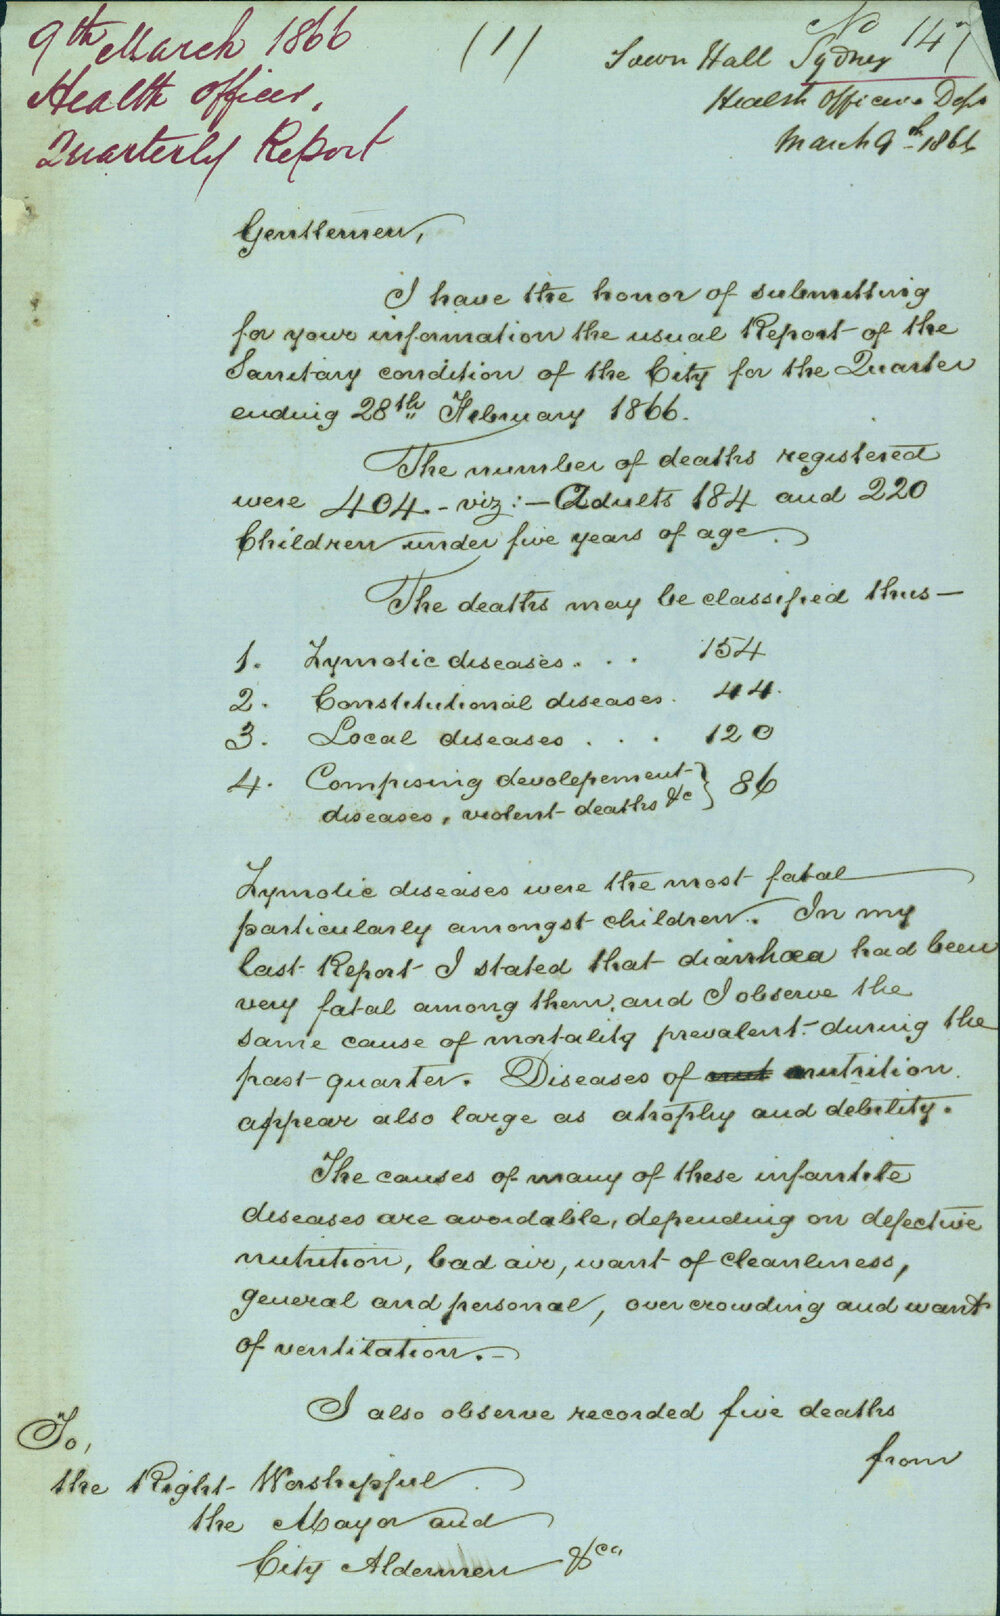 9th March 1866
Health Officer,
Quarterly Report
(1)
No 147
Town Hall Sydney
Health Officers Dept
March 9th 1866
Gentlemen,
I have the honor of submitting
for your information the usual Report of the
Sanitary condition of the City for the Quarter
ending 28th February 1866.
The number of deaths registered
were 404. - viz: - Adults 184 and 220
Children under five years of age.
The deaths may be classified thus —
1. Zymotic diseases . . . 154
2. Constitutional diseases. 44.
3. Local diseases . . . 120
4. Comprising devolepement
diseases, violent deaths &c } 86
Zymotic diseases were the most fatal
particularly amongst children. In my
last Report I stated that diarrhœa had been
very fatal among them, and I observe the
same cause of mortality prevalent during the
past quarter. Diseases of nut nutrition
appear also large as atrophy and debility.
The causes of many of these infantile
diseases are avoidable, depending on defective
nutrition, bad air, want of cleanliness,
general and personal, over crowding and want
of ventilation. —
I also observe recorded five deaths
from
To,
the Right Worshipful
the Mayor and
City Aldermen &ca